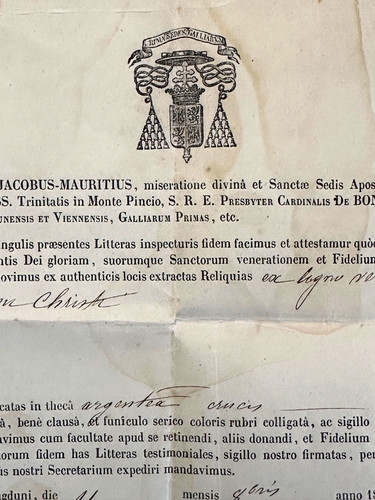 PRIMA SEDES GALLIARUM
JACOBUS-MAURITIUS, miseratione divinâ et Sanctæ Sedis Apos
SS. Trinitatis in Monte Pincio, S. R. E. Presbyter Cardinalis De BON
unensis et Viennensis, Galliarum Primas, etc.
ingulis præsentes Litteras inspecturis fidem facimus et attestamur quòd
ntis Dei gloriam, suorumque Sanctorum venerationem et Fidelium
ovimus ex authenticis locis extractas Reliquias ex ligno ve
Christi
catas in thecâ argenteâ crucis
â, benè clausâ, et funiculo serico coloris rubri colligatâ, ac sigillo
avimus cum facultate apud se retinendi, aliis donandi, et Fidelium
orum fidem has Litteras testimoniales, sigillo nostro firmatas, per
us nostri Secretarium expediri mandavimus.
gduni, die mensis 8bris anno 18